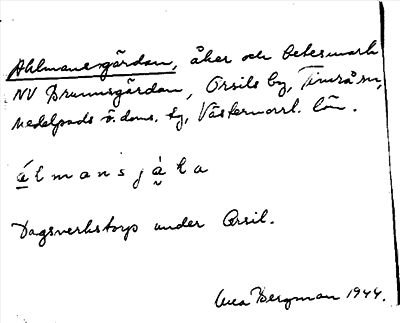 Ahlmansgärdan, åker och betesmark
NV Brunnsgärdan, Orsils by, Timrå sn,
Medelpads ö. doms. tg, Västernorrl. län.
á l m a n s j à ḷ a
Dagsverkstorp under Orsil.
Ulla Bergman 1944.